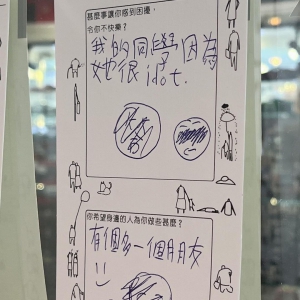 甚麼事讓你感到困擾,
令你不快樂?
我的同學因為
她很 idot.
你希望身邊的人為你做些甚麼?
有個多一個月月友